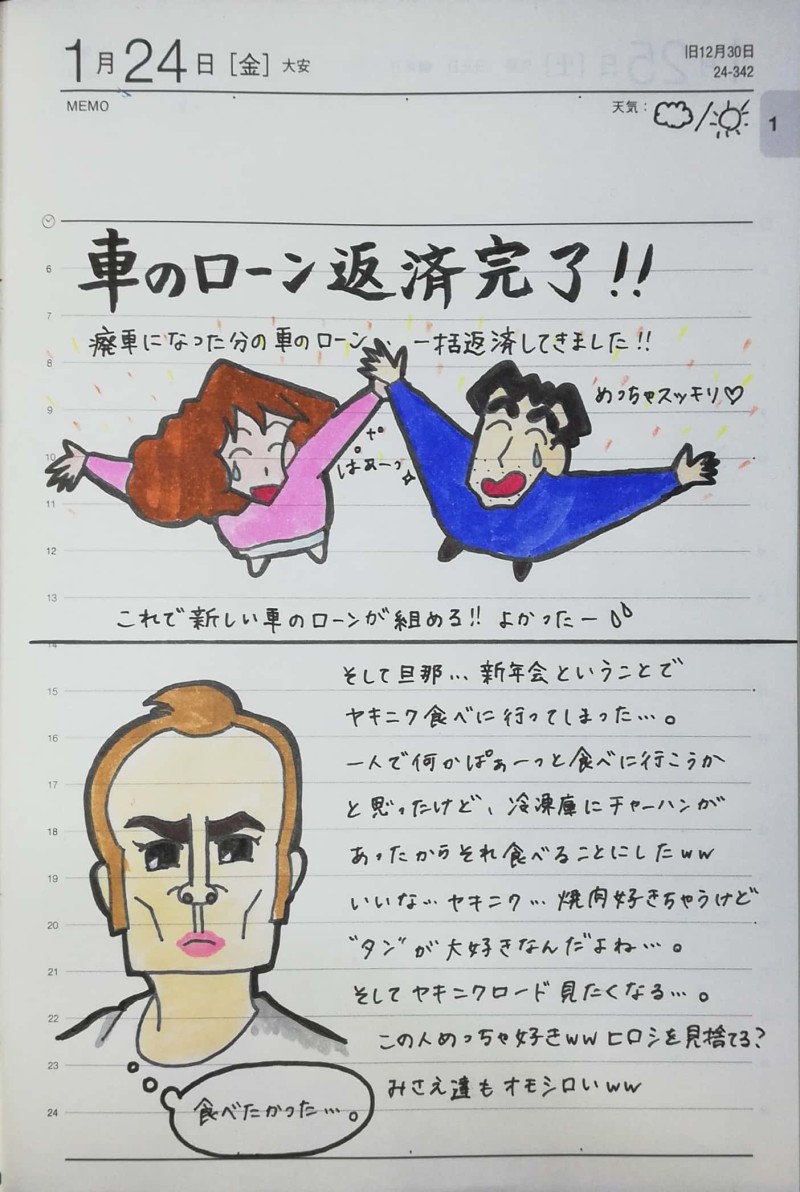 1月24日[金] 大安
旧12月30日
24-342
MEMO
天気：
1
車のローン返済完了!!
廃車になった分の車のローン、、一括返済してきました!!
めっちゃスッキリ♡
ぱぁーっ
これで新しい車のローンが組める!! よかったー
そして旦那… 新年会ということで
ヤキニク食べに行ってしまった…。
一人で何かぱぁーっと食べに行こうか
と思ったけど、冷凍庫にチャーハンが
あったからそれ食べることにしたww
いいな… ヤキニク… 焼肉好きちゃうけど
"タン"が大好きなんだよね…。
そしてヤキニクロード見たくなる…。
この人めっちゃ好きww ヒロシを見捨てる?
みさえ達もオモシロいww
食べたかった…。
6
7
8
9
10
11
12
13
14
15
16
17
18
19
20
21
22
23
24